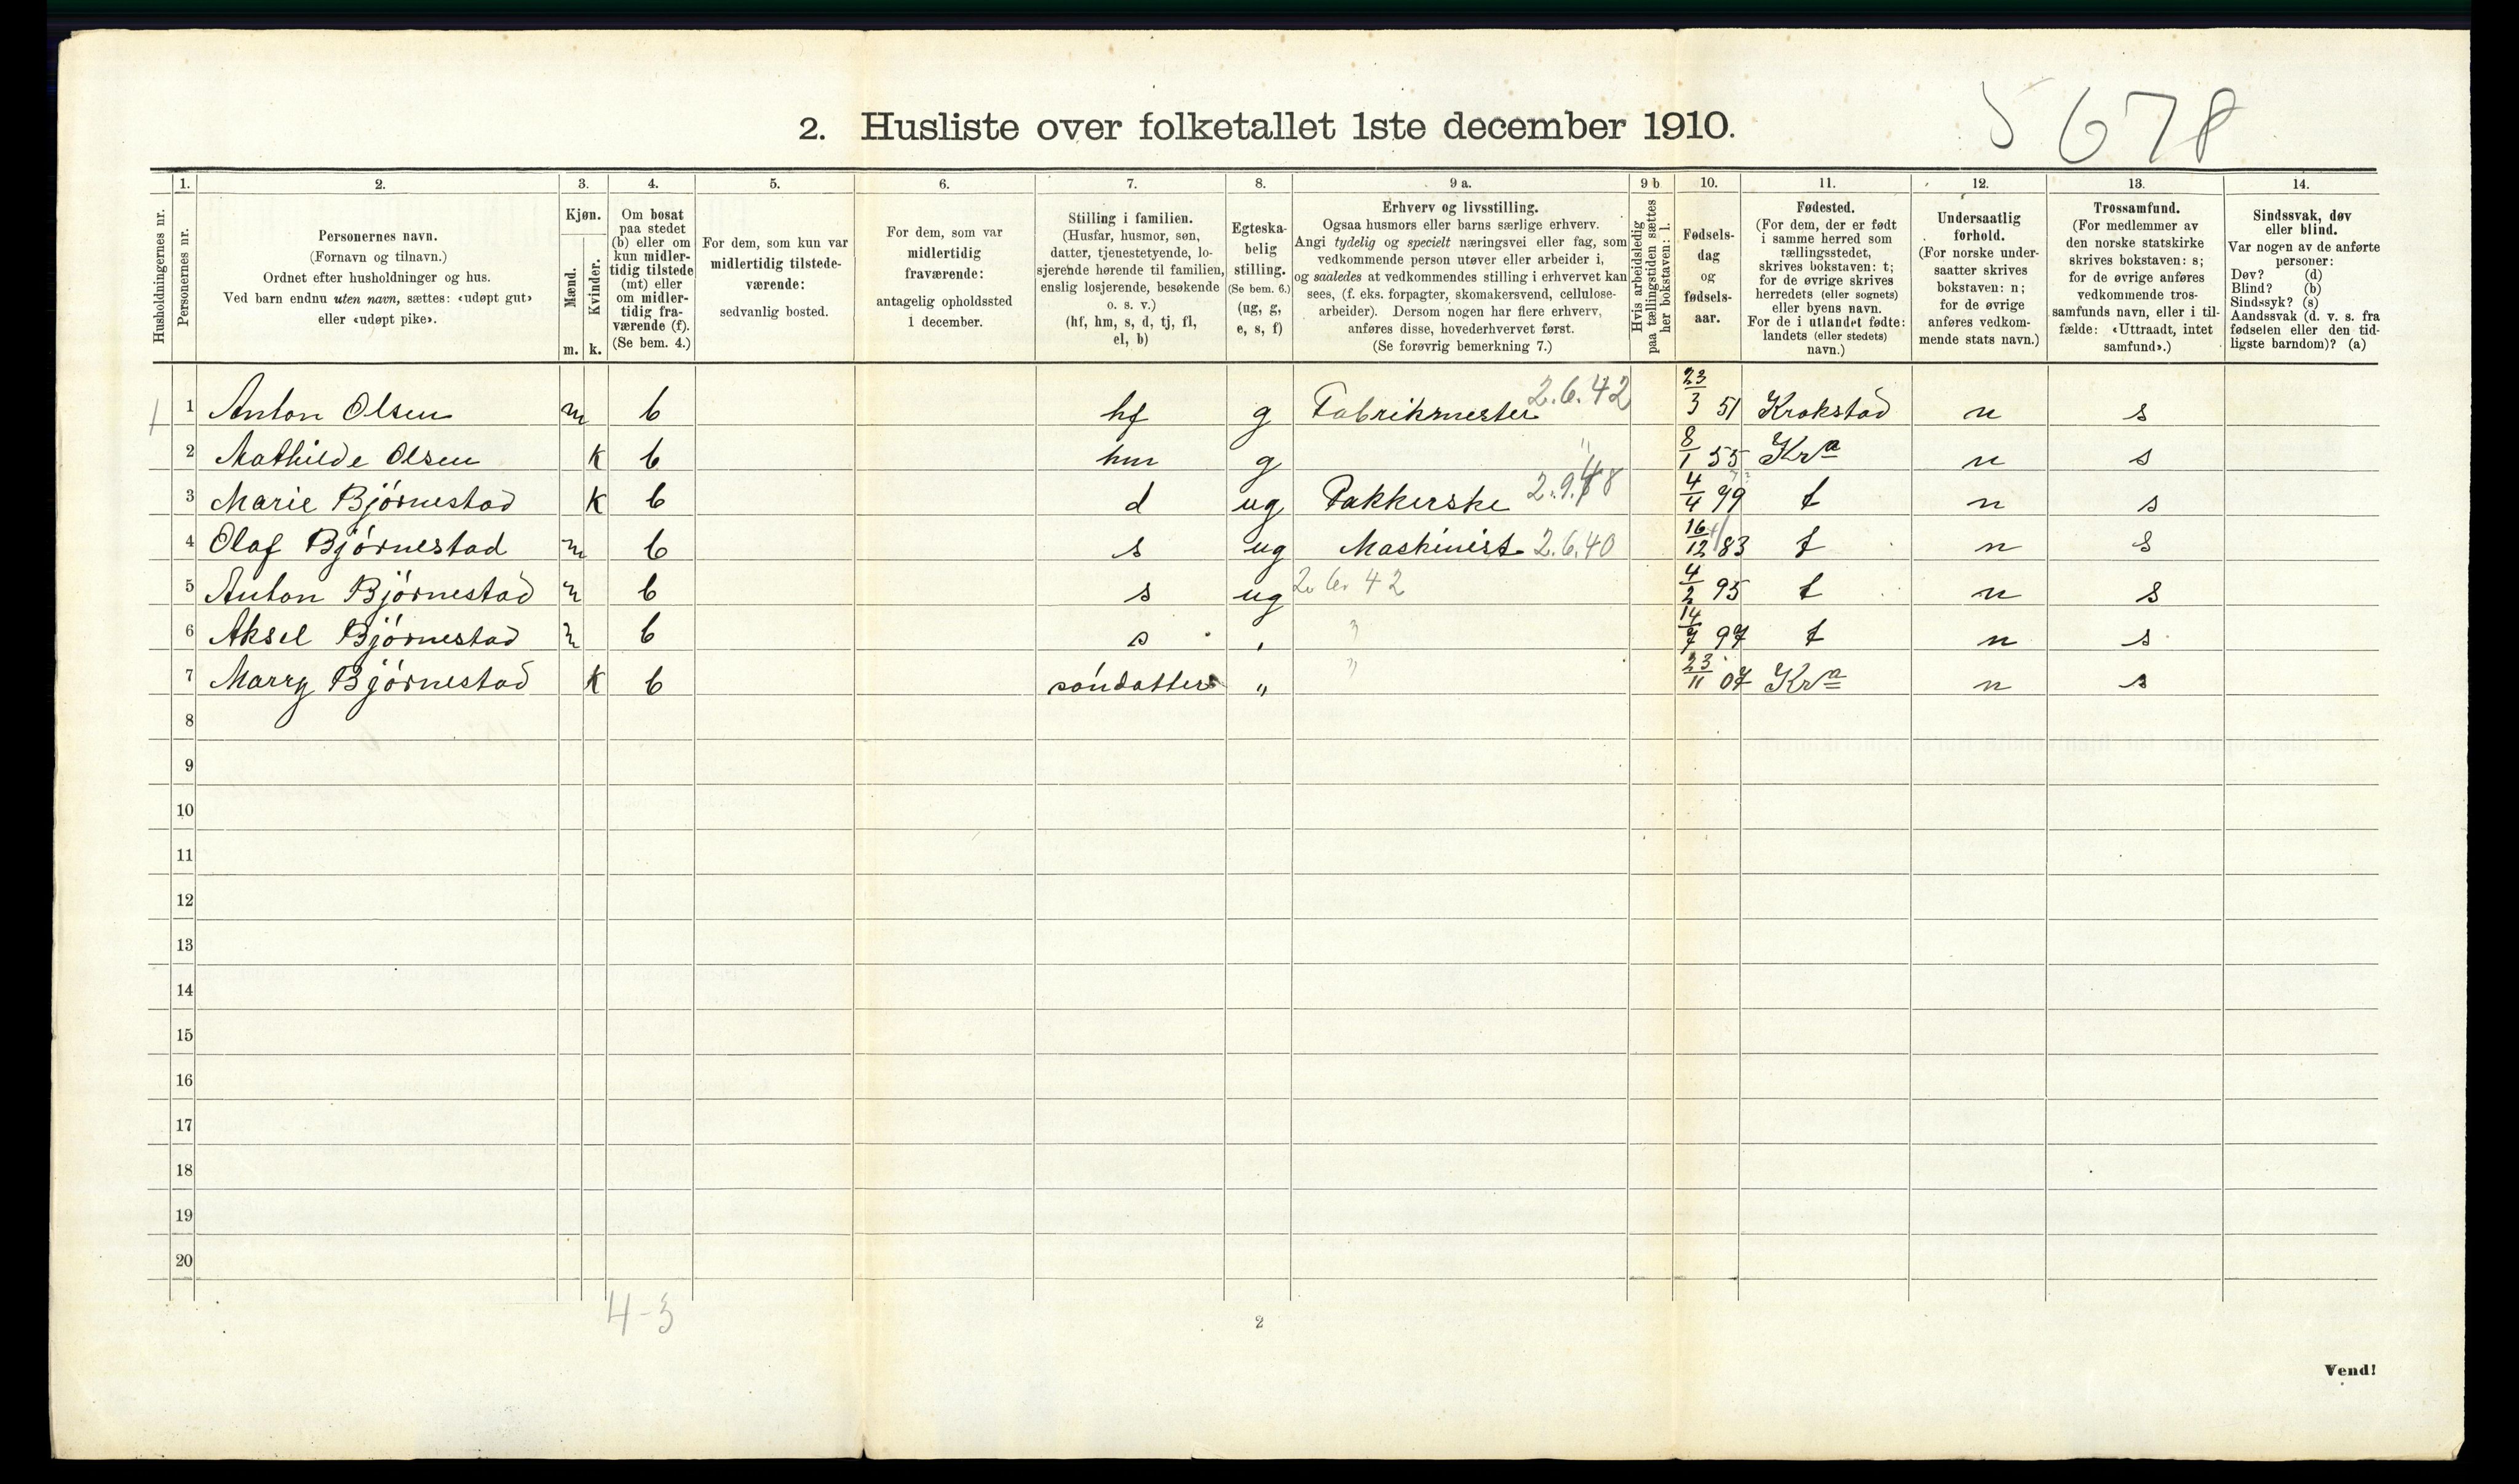 5678
2. Husliste over folketallet 1ste december 1910.
Husholdningernes nr.
1. Personernes nr.
2. Personernes navn. (Fornavn og tilnavn.) Ordnet efter husholdninger og hus. Ved barn endnu uten navn, sættes: «udøpt gut» eller «udøpt pike».
3. Kjøn. Mænd. m. Kvinder. k.
4. Om bosat paa stedet (b) eller om kun midlertidig tilstede (mt) eller om midlertidig fraværende (f). (Se bem. 4.)
5. For dem, som kun var midlertidig tilstedeværende: sedvanlig bosted.
6. For dem, som var midlertidig fraværende: antagelig opholdssted 1 december.
7. Stilling i familien. (Husfar, husmor, søn, datter, tjenestetyende, losjerende hørende til familien, enslig losjerende, besøkende o. s. v.) (hf, hm, s, d, tj, fl, el, b)
8. Egteskabelig stilling. (Se bem. 6.) (ug, g, e, s, f)
9 a. Erhverv og livsstilling. Ogsaa husmors eller barns særlige erhverv. Angi tydelig og specielt næringsvei eller fag, som vedkommende person utøver eller arbeider i, og saaledes at vedkommendes stilling i erhvervet kan sees, (f. eks. forpagter, skomakersvend, cellulosearbeider). Dersom nogen har flere erhverv, anføres disse, hovederhvervet først. (Se forøvrig bemerkning 7.)
9 b Hvis arbeidsledig paa tællingstiden sættes her bokstaven: l.
10. Fødselsdag og fødselsaar.
11. Fødested. (For dem, der er født i samme herred som tællingsstedet, skrives bokstaven: t; for de øvrige skrives herredets (eller sognets) eller byens navn. For de i utlandet fødte: landets (eller stedets) navn.)
12. Undersaatlig forhold. (For norske undersaatter skrives bokstaven: n; for de øvrige anføres vedkommende stats navn.)
13. Trossamfund. (For medlemmer av den norske statskirke skrives bokstaven: s; for de øvrige anføres vedkommende trossamfunds navn, eller i tilfælde: «Uttraadt, intet samfund».)
14. Sindssvak, døv eller blind. Var nogen av de anførte personer: Døv? (d) Blind? (b) Sindssyk? (s) Aandssvak (d. v. s. fra fødselen eller den tidligste barndom)? (a)
1 1 Anton Olsen m b hf g Fabrikmester 2.6.42 23/3 51 Krokstad n s
2 Mathilde Olsen k b hm g " 8/1 55 Kra n s
3 Marie Bjørnestad k b d ug Pakkerske 2.9.48 4/4 79 t n s
4 Olaf Bjørnestad m b s ug Maskinist 2.6.40 16/12 83 t n s
5 Anton Bjørnestad m b s ug 2.6.42 4/2 95 t n s
6 Aksel Bjørnestad m b s " " 14/7 97 t n s
7 Marry Bjørnestad k b søndatter " " 23/11 07 Kra n s
8
9
10
11
12
13
14
15
16
17
18
19
20
4-3
2
Vend!